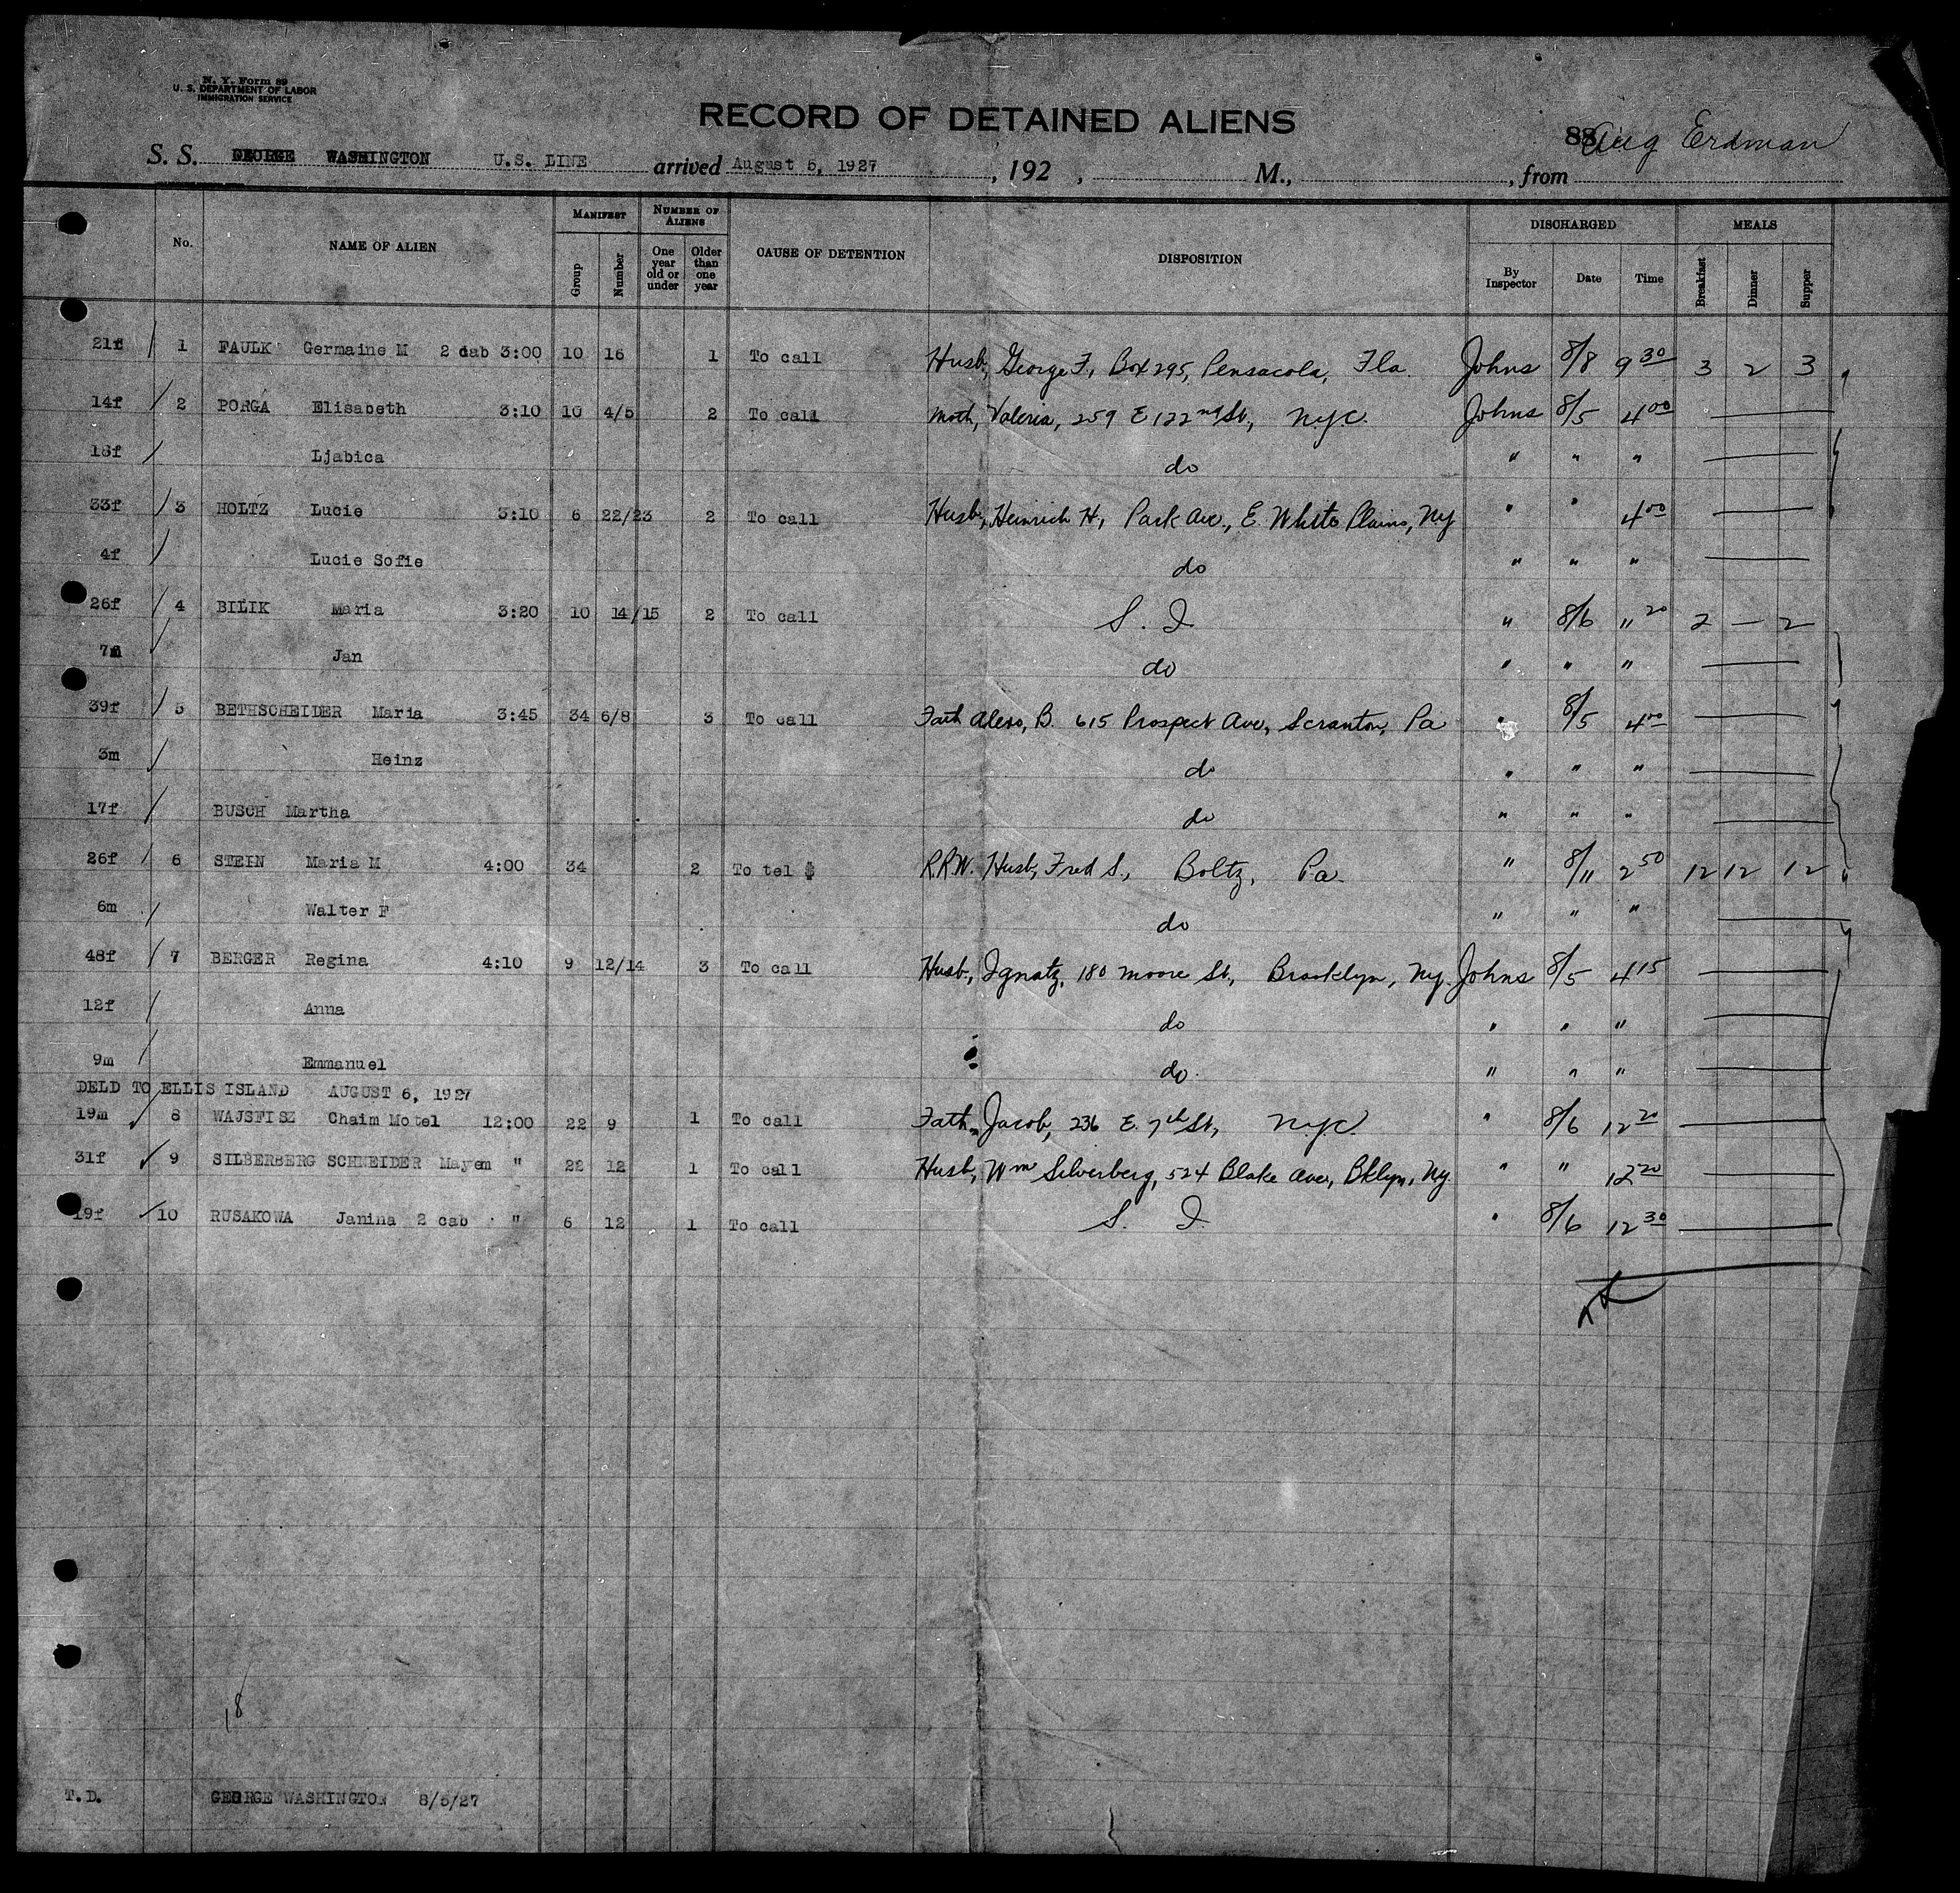 N. Y. Form 89
U. S. DEPARTMENT OF LABOR
IMMIGRATION SERVICE
RECORD OF DETAINED ALIENS
88 Aug Erdman
S. S. GEORGE WASHINGTON U.S. LINE arrived August 5, 1927, 192 , M., , from
No. NAME OF ALIEN MANIFEST NUMBER OF ALIENS CAUSE OF DETENTION DISPOSITION DISCHARGED MEALS
Group Number One year old or under Older than one year By Inspector Date Time Breakfast Dinner Supper
21f / 1 FAULK Germaine M 2 cab 3:00 10 16 1 To call Husb, George F, Box 295, Pensacola, Fla. Johns 8/8 9 30 3 2 3
14f / 2 PORGA Elisabeth 3:10 10 4/5 2 To call Moth, Valeria, 259 E 122nd St., N.Y.C. Johns 8/5 4 00 —
18f / Ljabica do " " " —
33f / 3 HOLTZ Lucie 3:10 6 22/23 2 To call Husb, Heinrich H, Park Ave., E. White Plains, NY " " 4 00
4f / Lucie Sofie do " " " —
26f / 4 BILIK Maria 3:20 10 14/15 2 To call S. I " 8/6 " 20 2 — 2
7m / Jan do " " " —
39f / 5 BETHSCHEIDER Maria 3:45 34 6/8 3 To call Fath B. 615 Prospect Ave, Scranton, Pa " 8/5 4 00 —
3m / Heinz do " " " —
17f / BUSCH Martha do " " " —
26f / 6 STEIN Maria M 4:00 34 2 To tel $ R.R.W. Husb, Fred S., Boltz, Pa. " 8/11 2 50 12 12 12
6m / Walter F do " " " —
48f / 7 BERGER Regina 4:10 9 12/14 3 To call Husb, Ignatz, 180 Moore St, Brooklyn, NY. Johns 8/5 4 15 —
12f / Anna do " " " —
9m / Emmanuel do " " " —
DELD TO ELLIS ISLAND AUGUST 6, 1927
19m / 8 WAJSFISZ Chaim Motel 12:00 22 9 1 To call Fath, Jacob, 236 E. 7th St, N.Y.C. " 8/6 12 20 —
31f ✓ 9 SILBERBERG SCHNEIDER Mayem " 22 12 1 To call Husb, Wm Silverberg, 524 Blake Ave, Bklyn, NY. " " 12 20 —
19f ✓ 10 RUSAKOWA Janina 2 cab " 6 12 1 To call S. I " 8/6 12 30 —
18
T.D. GEORGE WASHINGTON 8/5/27